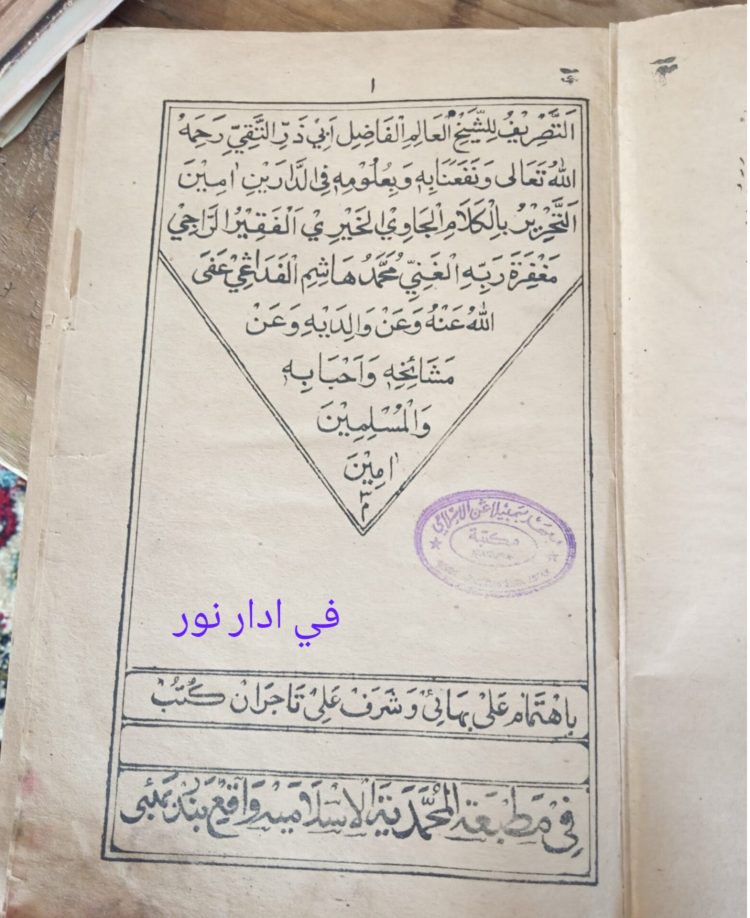 ١
التَّصْرِيْفُ لِلشَّيْخِ الْعَالِمِ الْفَاضِلِ اَبِيْ ذَرِّ التَّقِيِّ رَحِمَهُ
اللهُ تَعَالٰى وَنَفَعَنَابِهٖ وَبِعُلُوْمِهٖ فِي الدَّارَيْنِ اٰمِيْنَ
التَّحْرِيْرُ بِالْكَلَامِ الْجَاوِيْ الْخَيْرِيْ اَلْفَقِيْرُ الرَّاجِيْ
مَغْفِرَةَ رَبِّهِ الْغَنِيِّ مُحَمَّدُ هَاشِمِ الْفَدَاغِيْ عَفٰى
اللهُ عَنْهُ وَعَنْ وَالِدَيْهِ وَعَنْ
مَشَائِخِهٖ وَاَحْبَابِهٖ
وَالْمُسْلِمِيْنَ
اٰمِيْنَ
٣
م
مكتبة
في ادار نور
باهْتِمَام عَلِيْ بهَائِيْ وَشَرَف عَلِيْ تَاجِرَانْ كُتُبْ
فِيْ مَطْبَعَة الْمُحَمَّدِيَّة الْاِسْلَامِيَه وَاقِعْ بَنْدَر بَمْبَئِى